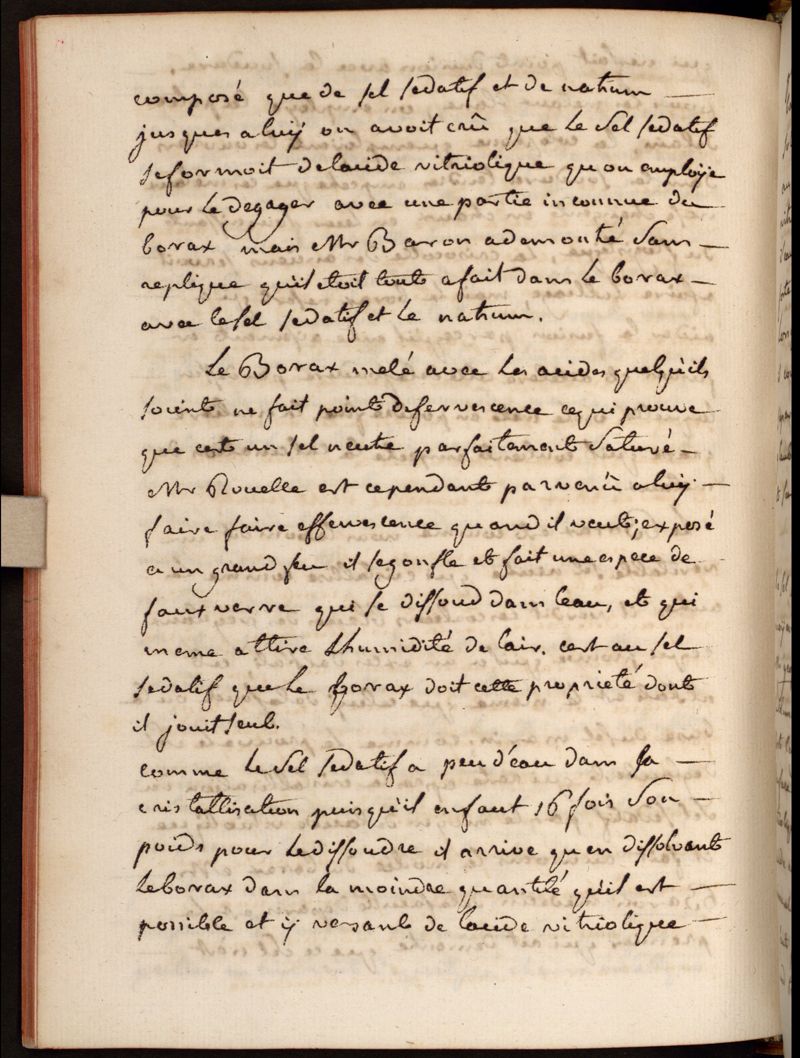 composé que de sel sedatif et de natrum —
jusques a luÿ on avoit crû que le sel sedatif
se formoit de lacide vitriolique qu on employe
pour le degager avec une partie inconnue du
borax mais Mr Baron a demontré sans —
replique quil etoit touts a fait dans le borax —
avec le sel sedatif et le natrum.
Le Borax melé avec les acides quelquils
soients ne fait points deffervescence ce qui prouve
que cests un sel neutre parfaitements saturé —
Mr Rouelle est cependants parvenû a luÿ —
faire faire effervescence quand il veut; exposé
a un grand feu il se gonfle et fait une espece de
faux verre qui se dissoud dans leau, et qui
meme attire Lhumidité de lair. cest au sel
sedatif que le borax doit cette proprieté dont
il jouit seul.
comme le sel sedatif a peu d'eau dans sa —
cristallisation puisqu'il en faut 16 fois son —
poids pour le dissoudre il arrive qu en dissolvants
le borax dans la moindre quantité quil est —
possible et ÿ versant de lacide vitriolique —